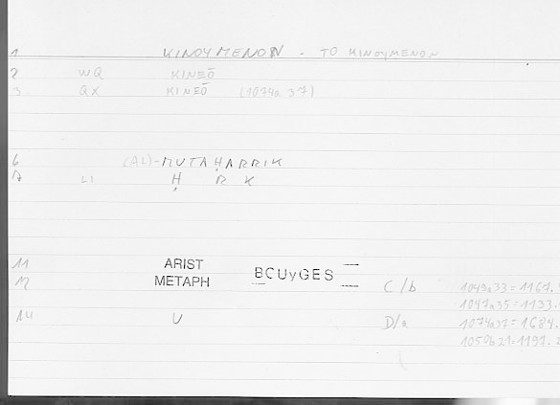 1 KINOYMENON - TO KINOYMENON
2 WQ KINEŌ
3 QX KINEŌ (1074a 37)
6 (AL)-MUTAḤARRIK
7 LI Ḥ R K
11 ARIST BOUyGES
12 METAPH C/b 1049a33=1167.
1047a35=1133.
14 U D/a 1074a37=1684.
1050b21=1197.